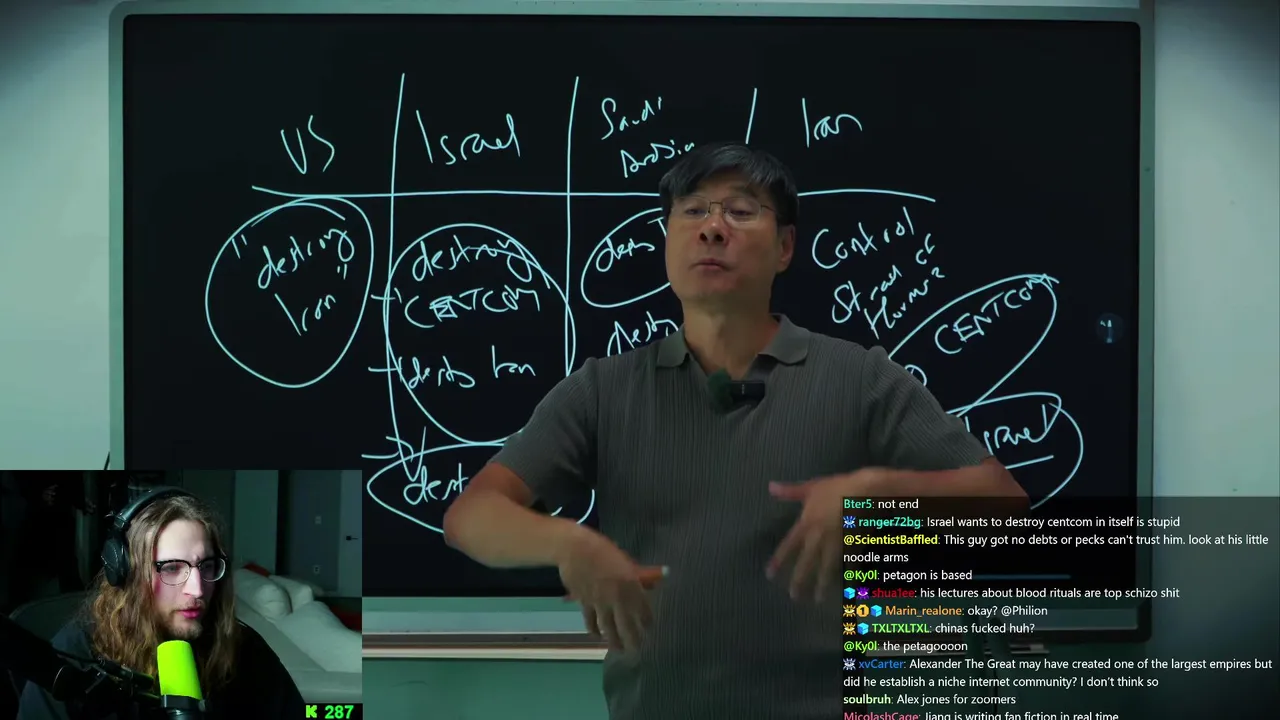 US
Israel
Saudi
Arabia
Iran
"destroy
Iran"
destroy
"CENTCOM"
Control
Strait of
Hormuz
CENTCOM
Israel
K 287
Bter5: not end
ranger72bg: Israel wants to destroy centcom in itself is stupid
@ScientistBaffled: This guy got no debts or pecks can't trust him. look at his little
noodle arms
@Ky0l: petagon is based
shua1ee: his lectures about blood rituals are top schizo shit
Marin_realone: okay? @Philion
TXLTXLTXL: chinas fucked huh?
@Ky0l: the petagoooon
xvCarter: Alexander The Great may have created one of the largest empires but
did he establish a niche internet community? I don't think so
soulbruh: Alex jones for zoomers
MicolashCage: Jiang is writing fan fiction in real time